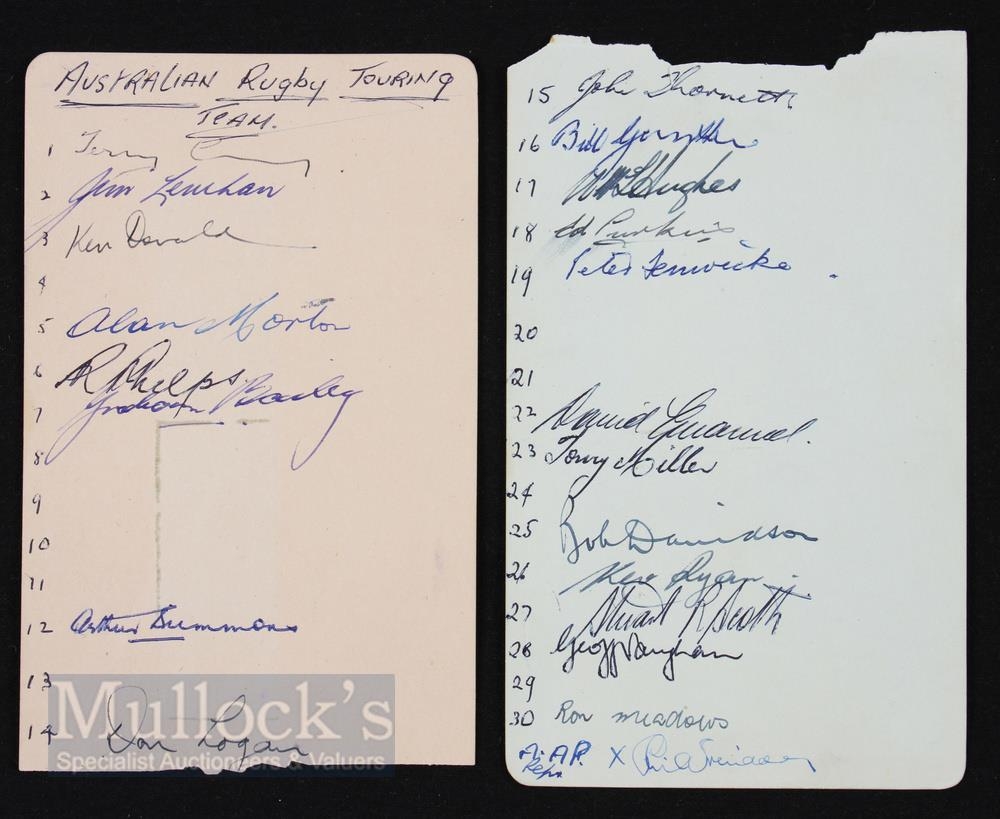 AUSTRALIAN Rugby TOURING
TEAM.
1 Terry Curley
2 Jim Lenehan
3 Ken Donald
4
5 Alan Morton
6 R Phelps
7 Graham Bailey
8
9
10
11
12 Arthur Summons
13
14 Don Logan
MULLOCK'S
Specialist Auctioneers & Valuers
15 John Thornett
16 Bill Gunther
17 Hughes
18 Ed Purkiss
19 Peter Fenwicke
20
21
22 David Emanuel.
23 Tony Miller
24
25 Bob Davidson
26 Kev Ryan
27 Stuart Scotts
28 Geoff Vaughan
29
30 Ron meadows
X